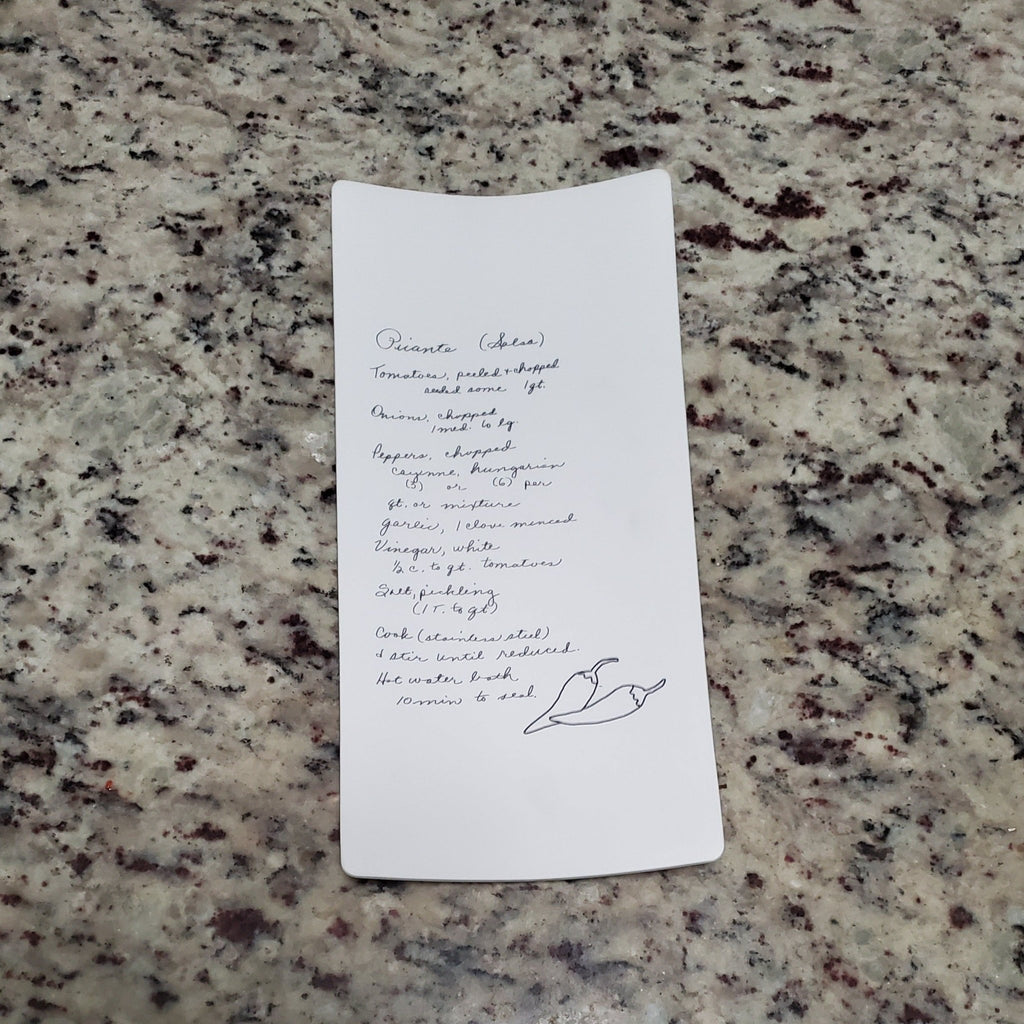 Picante (Salsa)
Tomatoes, peeled + chopped
seeded some 1 qt.
Onions, chopped
1 med. to lg.
Peppers, chopped
cayenne, hungarian
(5) or (6) per
qt. or mixture
garlic, 1 clove minced
Vinegar, white
1/2 c. to qt. tomatoes
Salt, pickling
(1 T. to qt)
Cook (stainless steel)
& stir until reduced.
Hot water bath
10 min to seal.